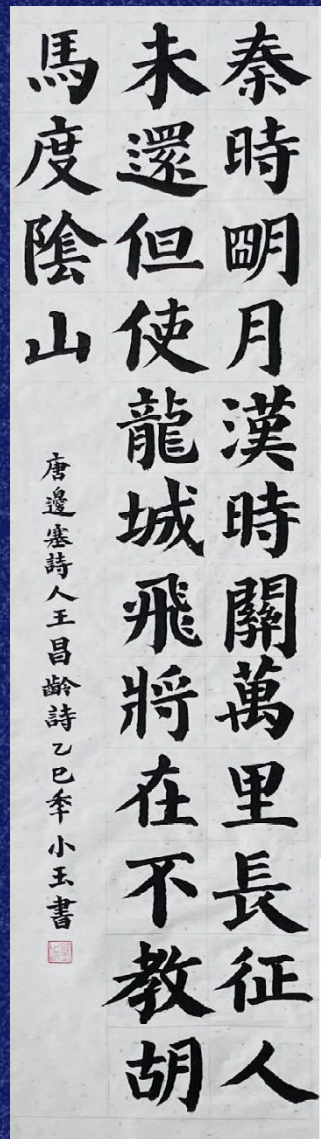 秦時明月漢時關萬里長征人
未還但使龍城飛將在不教胡
馬度陰山
唐邊塞詩人王昌齡詩乙巳年小玉書